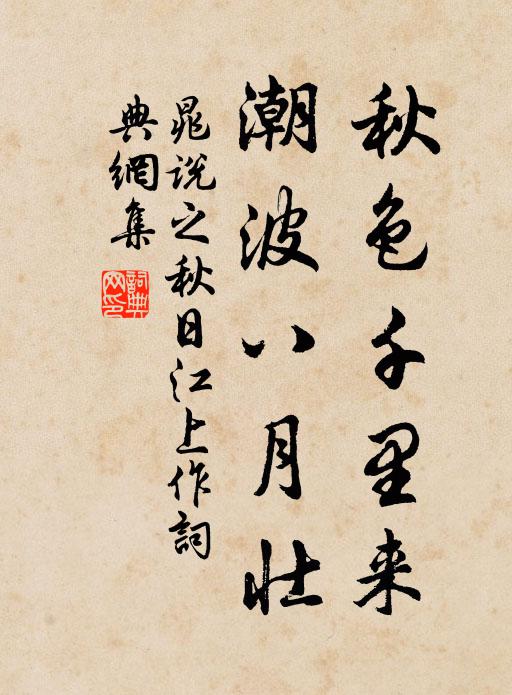 秋色千里来
潮波八月壮
晁说之秋日江上作詞
典網集
詞典网印